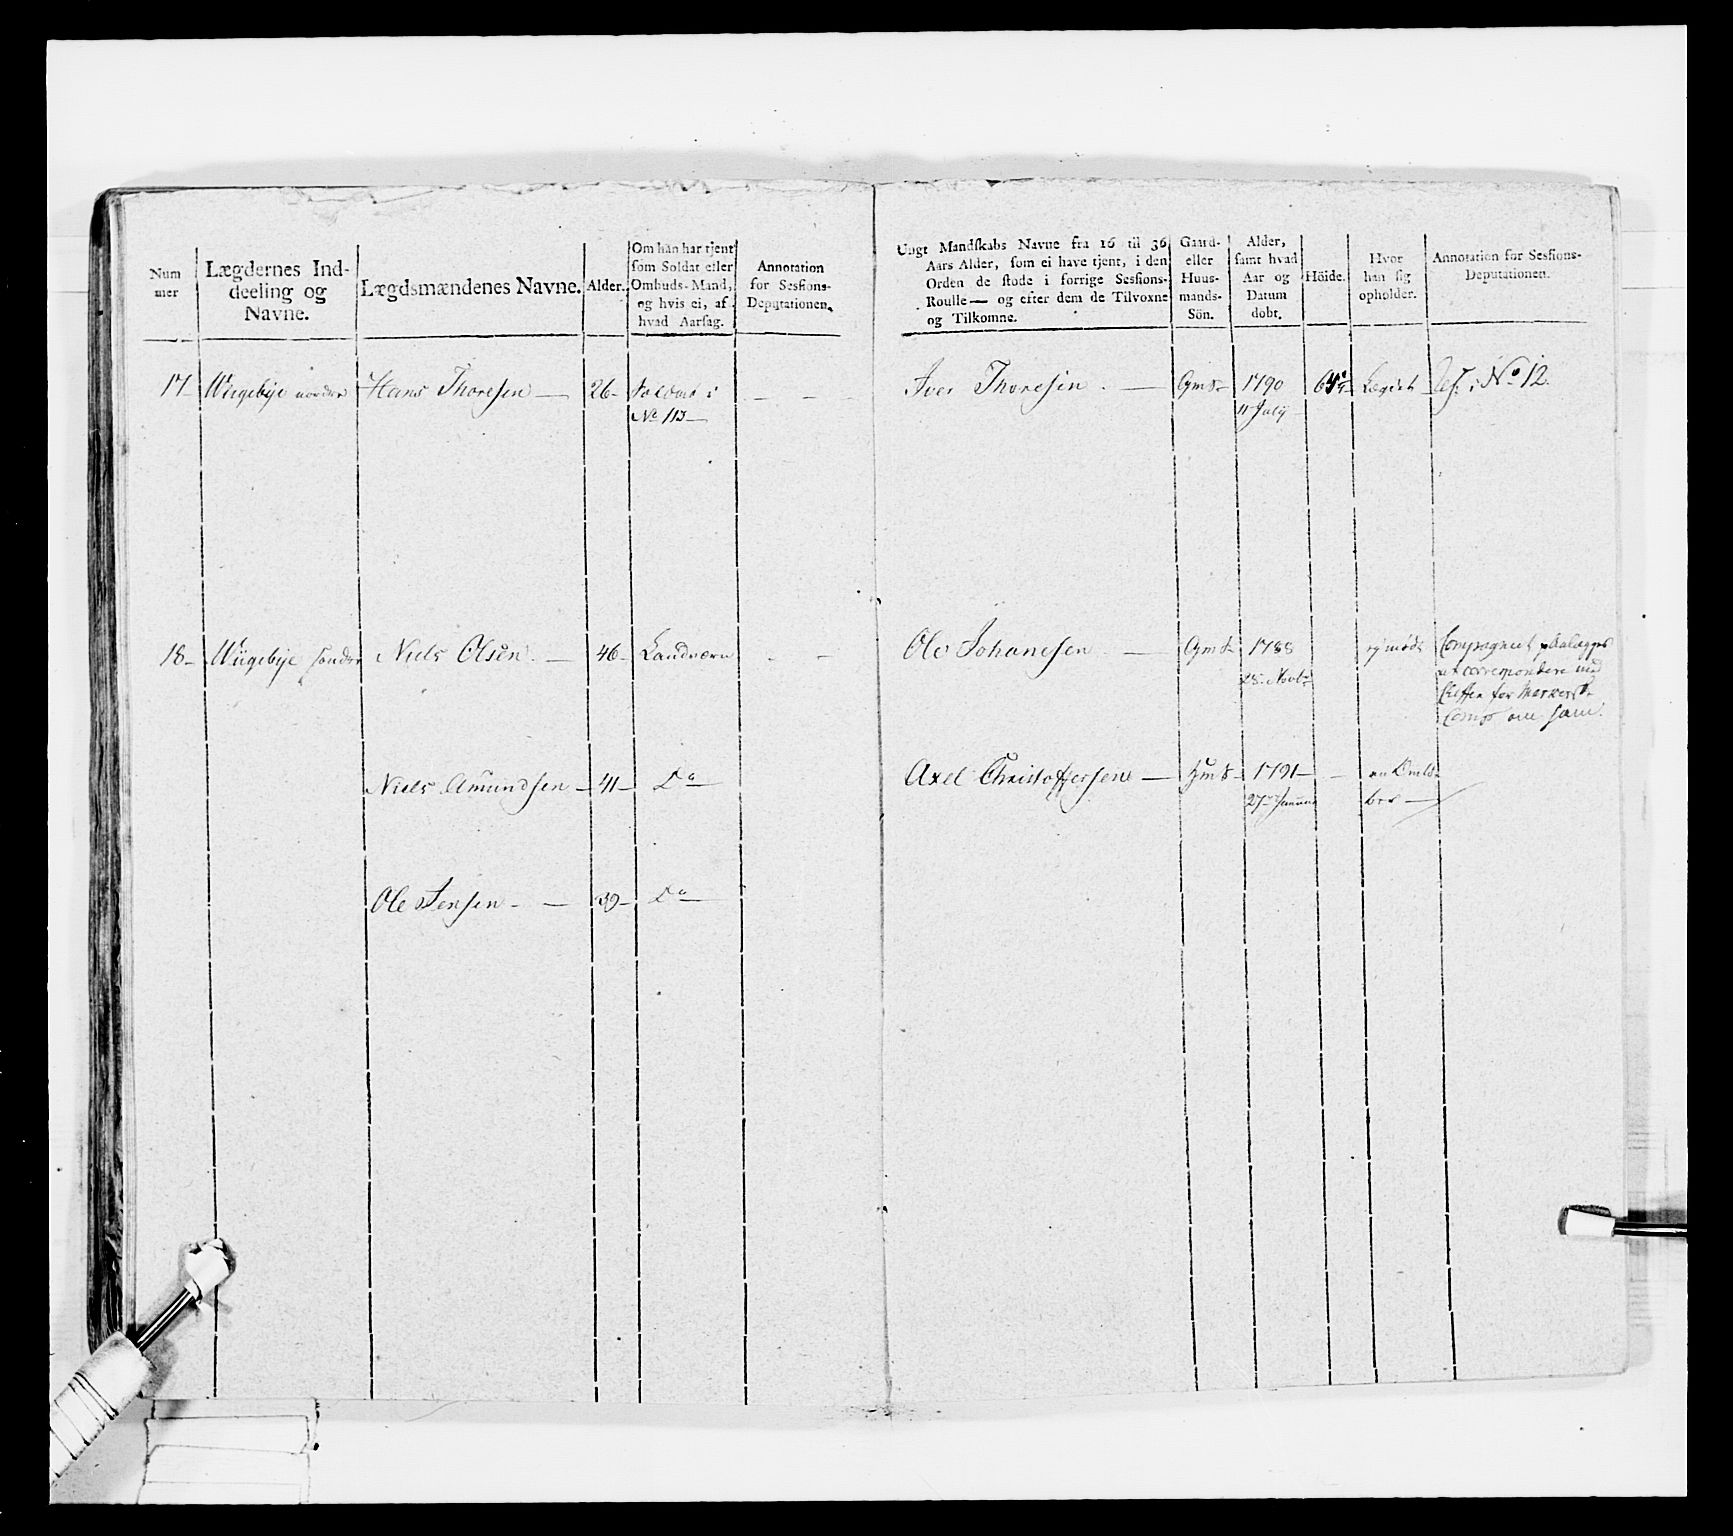 Num
mer
Lægdernes Ind-
deeling og
Navne.
Lægdsmændenes Navne.
Alder.
Om han har tjent
som Soldat eller
Ombuds-Mand,
og hvis ei, af
hvad Aarsag.
Annotation
for Sessions-
Deputationen.
Ungt Mandskabs Navne fra 16 til 36
Aars Alder, som ei have tjent, i den
Orden de stode i forrige Sessions-
Roulle — og efter dem de Tilvoxne
og Tilkomne.
Gaard-
eller
Huus-
mands-
Sön.
Alder,
samt hvad
Aar og
Datum
döbt.
Höide.
Hvor
han sig
opholder.
Annotation for Sessions-
Deputationen.
17 Wiigebye nordre Hans Thoresen — 26 Soldat i
No 113 —
Iver Thoresen — Gms 1790 Lægdet i No 12.
11 July
18 Wiigebye søndre Niels Olsen — 46 Landværn
Ole Johanesen — Gms 1788 ej mødt Compagniet paalægges
28 Novbr at correspondere med
Cheffen for
Comp om ham.
Niels Amundsen — 41 Do
Axel Christoffersen — Hms 1791 —
27 Januar
Ole Jensen — 39 Do